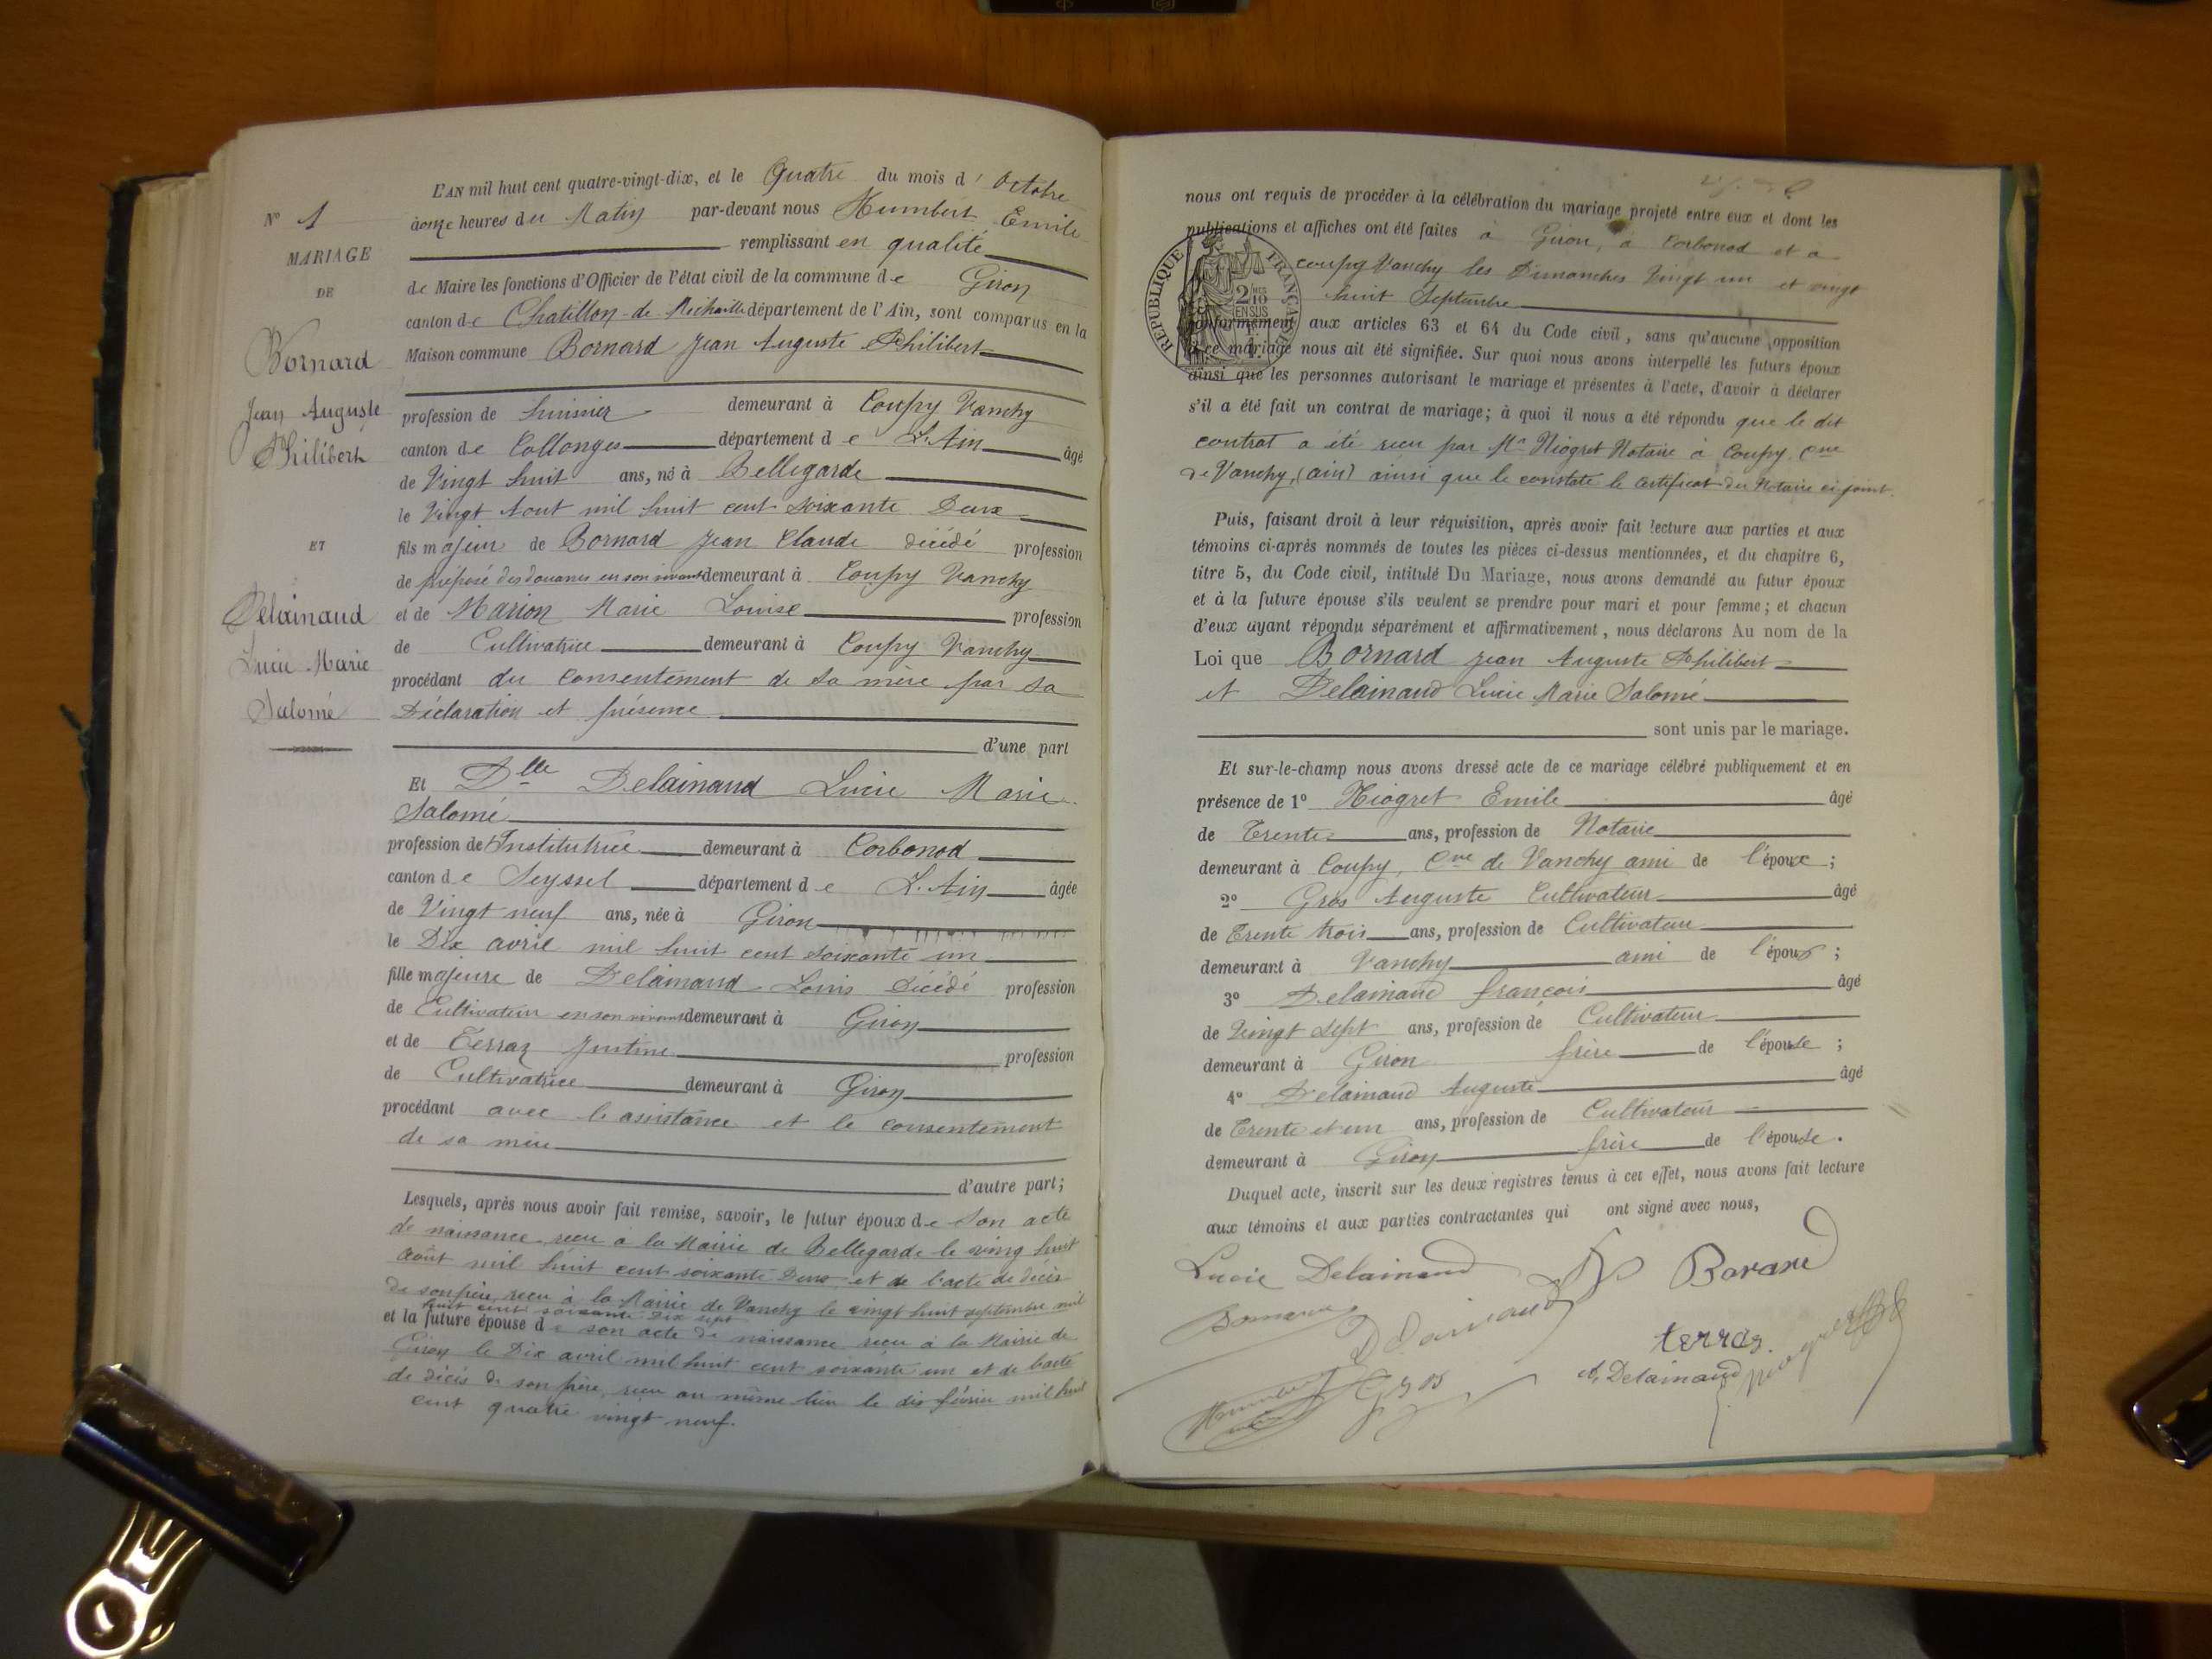 N° 1
MARIAGE
DE
Bornard
Jean Auguste
Philibert
ET
Delainaud
Lucie Marie
Salomé
L'AN mil huit cent quatre-vingt-dix, et le Quatre du mois d' Octobre
à onze heures du Matin par-devant nous Humbert Emile
remplissant en qualité
de Maire les fonctions d'Officier de l'état civil de la commune de Giron
canton de Chatillon-de-Michaille département de l'Ain, sont comparus en la
Maison commune Bornard Jean Auguste Philibert
profession de huissier demeurant à Coupy Vanchy
canton de Collonges département de L'Ain âgé
de Vingt huit ans, né à Bellegarde
le Vingt Aout mil huit cent soixante Deux
fils majeur de Bornard Jean Claude décédé profession
de préposé des douanes en son vivant demeurant à Coupy Vanchy
et de Marion Marie Louise profession
de Cultivatrice demeurant à Coupy Vanchy
procédant du Consentement de sa mère par sa
Déclaration et présence
d'une part
Et Dlle Delainaud Lucie Marie
Salomé
profession de Institutrice demeurant à Corbonod
canton de Seyssel département de L'Ain âgée
de Vingt neuf ans, née à Giron
le Dix avril mil huit cent soixante un
fille majeure de Delainaud Louis Décédé profession
de Cultivateur en son vivant demeurant à Giron
et de Terraz Justine profession
de Cultivatrice demeurant à Giron
procédant avec l'assistance et le consentement
de sa mère
d'autre part;
Lesquels, après nous avoir fait remise, savoir, le futur époux de son acte
de naissance reçu à la Mairie de Bellegarde le vingt huit
août mil huit cent soixante Deux et de l'acte de décès
de son père, reçu à la Mairie de Vanchy le vingt huit septembre mil
huit cent soixante dix sept
et la future épouse de son acte de naissance reçu à la Mairie de
Giron le Dix avril mil huit cent soixante un et de l'acte
de décès de son père, reçu au même lieu le dix février mil huit
cent quatre vingt neuf.
nous ont requis de procéder à la célébration du mariage projeté entre eux et dont les
publications et affiches ont été faites à Giron, à Corbonod et à
coupy Vanchy les Dimanches Vingt un et vingt
huit Septembre
RÉPUBLIQUE FRANÇAISE
2/10
EN SUS
conformément aux articles 63 et 64 du Code civil, sans qu'aucune opposition
à ce mariage nous ait été signifiée. Sur quoi nous avons interpellé les futurs époux
ainsi que les personnes autorisant le mariage et présentes à l'acte, d'avoir à déclarer
s'il a été fait un contrat de mariage; à quoi il nous a été répondu que le dit
contrat a été reçu par Me Niogret Notaire à Coupy, Cne
de Vanchy, (ain) ainsi que le constate le certificat du Notaire ci-joint.
Puis, faisant droit à leur réquisition, après avoir fait lecture aux parties et aux
témoins ci-après nommés de toutes les pièces ci-dessus mentionnées, et du chapitre 6,
titre 5, du Code civil, intitulé Du Mariage, nous avons demandé au futur époux
et à la future épouse s'ils veulent se prendre pour mari et pour femme; et chacun
d'eux ayant répondu séparément et affirmativement, nous déclarons Au nom de la
Loi que Bornard Jean Auguste Philibert
et Delainaud Lucie Marie Salomé
sont unis par le mariage.
Et sur-le-champ nous avons dressé acte de ce mariage célébré publiquement et en
présence de 1° Niogret Emile âgé
de Trente ans, profession de Notaire
demeurant à Coupy, Cne de Vanchy ami de l'époux;
2° Gros Auguste Cultivateur âgé
de Trente trois ans, profession de Cultivateur
demeurant à Vanchy ami de l'époux;
3° Delainaud françois âgé
de Vingt sept ans, profession de Cultivateur
demeurant à Giron frère de l'épouse;
4° Delainaud Auguste âgé
de Trente et un ans, profession de Cultivateur
demeurant à Giron frère de l'épouse.
Duquel acte, inscrit sur les deux registres tenus à cet effet, nous avons fait lecture
aux témoins et aux parties contractantes qui ont signé avec nous,
Lucie Delainaud
terraz
Delainaud
Gros